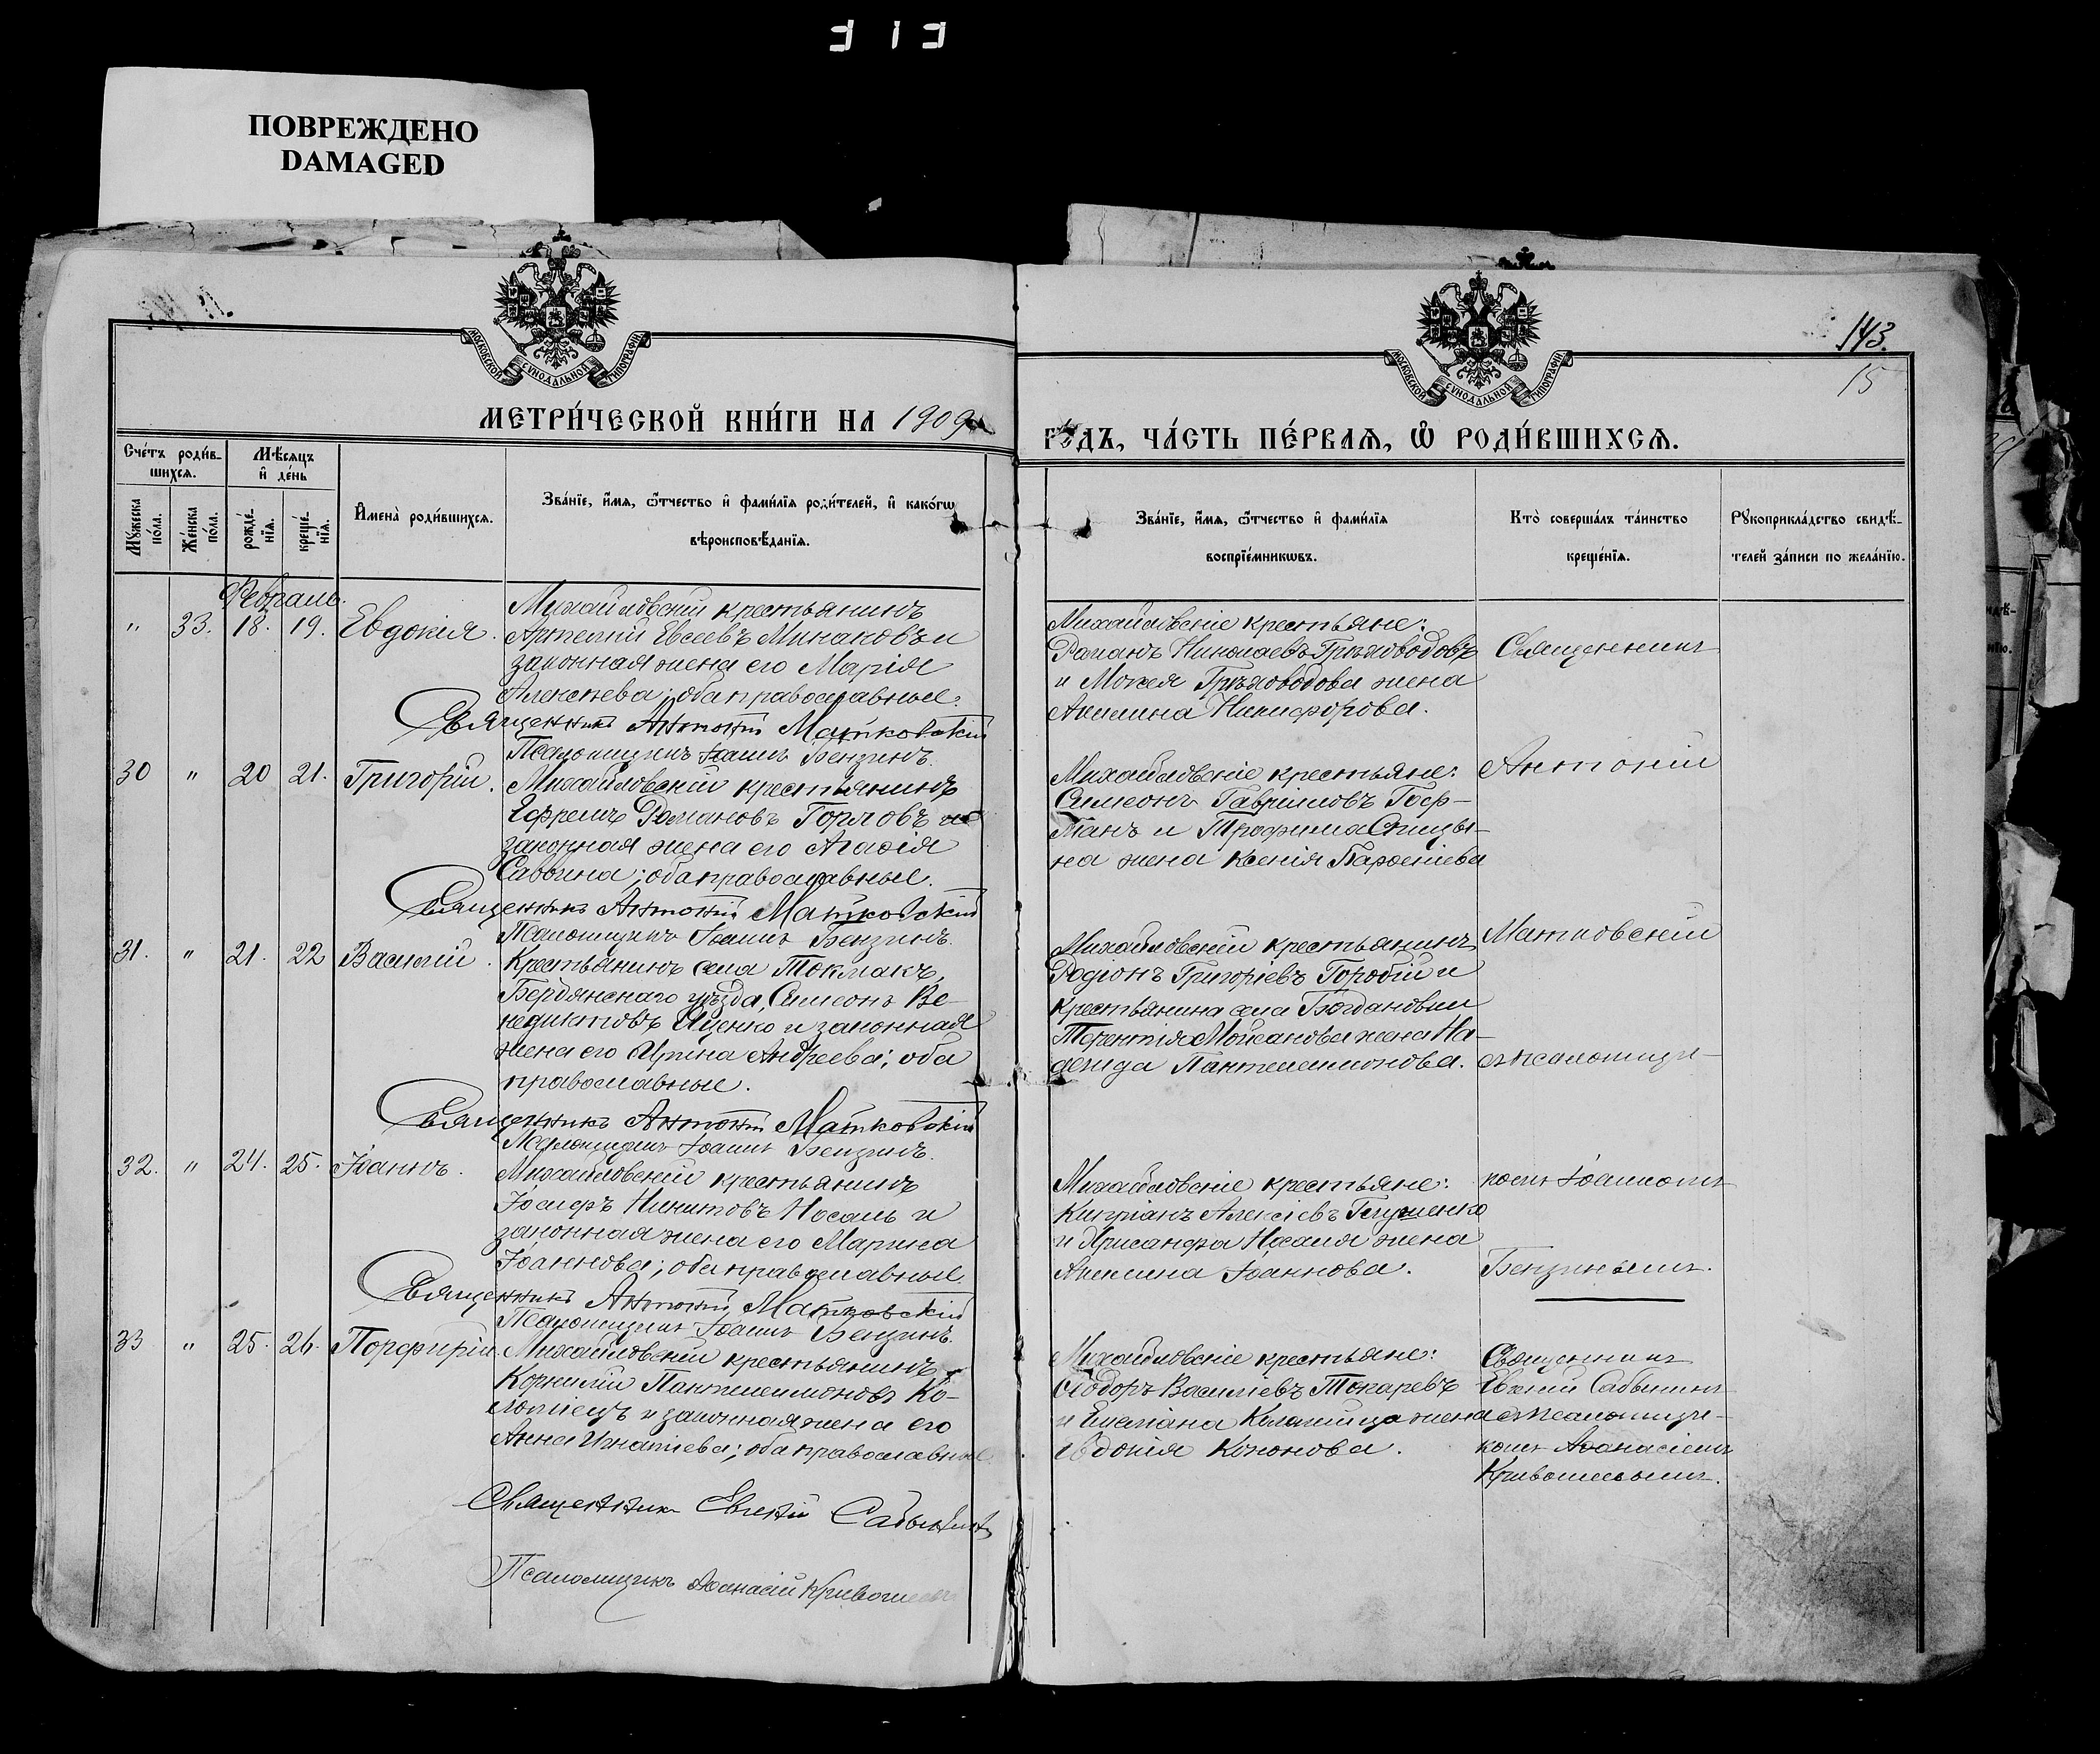 313
ПОВРЕЖДЕНО
DAMAGED
143.
15
МОСКОВСКОЙ СѴНОДАЛЬНОЙ ТИПОГРАФІИ
МОСКОВСКОЙ СѴНОДАЛЬНОЙ ТИПОГРАФІИ
МЕТРИ́ЧЕСКОЙ КНИ́ГИ НА 1909
ГО́ДЪ, ЧА́СТЬ ПЕ́РВАѦ, Ѡ҆ РОДИ́ВШИХСѦ.
Сче́тъ роди́в-
шихсѧ.
Мѣ́сѧцъ
и҆ де́нь
Мꙋ́жеска по́ла.
Же́нска по́ла.
рожде́-
нїѧ.
креще́-
нїѧ.
И҆мена̀ роди́вшихсѧ.
Зва́нїе, и҆́мѧ, ѻ҆́тчество и҆ фами́лїѧ роди́телей, и҆ како́гѡ
вѣроисповѣ́данїѧ.
Зва́нїе, и҆́мѧ, ѻ҆́тчество и҆ фами́лїѧ
воспрїе́мникѡвъ.
Кто̀ соверша́лъ та́инство
креще́нїѧ.
Рꙋкоприкла́дство свидѣ́-
телей за́писи по жела́нїю.
Февраль.
" 33. 18. 19. Евдокія.
Михайловскій крестьянинъ
Артемій Евсеевъ Минаковъ и
законная жена его Марія
Алексѣева; оба православные.
Священникъ Антоній Матковскій
Псаломщикъ Іоаннъ Бензинъ.
Михайловскіе крестьяне:
Романъ Николаевъ Грязноводовъ
и Мокея жена
Акилина Никифорова.
Священникъ
30 " 20 21. Григорій.
Михайловскій крестьянинъ
Ефремъ Романовъ Горловъ и
законная жена его Агаѳія
Саввина; оба православные.
Священникъ Антоній Матковскій
Псаломщикъ Іоаннъ Бензинъ.
Михайловскіе крестьяне:
Симеонъ Гавриловъ Гоф-
манъ и Трофима Спицы-
на жена Ксенія Парѳеніева
Антоній
31. " 21. 22 Василій.
Крестьянинъ села Токмакъ,
Бердянскаго уѣзда, Симеонъ Ве-
недиктовъ Яценко и законная
жена его Ирина Андреева; оба
православные.
Священникъ Антоній Матковскій
Псаломщикъ Іоаннъ Бензинъ.
Михайловскій крестьянинъ
Родіонъ Григоріевъ Горобій и
крестьянина села Богдановки
Терентія жена На-
дежда Пантелеимонова.
Матковскій
съ псаломщи-
32. " 24. 25. Іоаннъ.
Михайловскій крестьянинъ
Іосифъ Никитовъ Носаль и
законная жена его Марина
Іоаннова; оба православные.
Священникъ Антоній Матковскій
Псаломщикъ Іоаннъ Бензинъ.
Михайловскіе крестьяне:
Кипріанъ Алексіевъ Глущенко
и Хрисанфа Носаля жена
Акилина Іоаннова.
комъ Іоанномъ
Бензинымъ.
33 " 25. 26. Порфирій.
Михайловскій крестьянинъ
Корнилій Пантелеимоновъ Ко-
ломиецъ и законная жена его
Анна Игнатіева; оба православные
Священникъ Евгеній Сабынинъ
Псаломщикъ Аѳанасій Кривошеевъ
Михайловскіе крестьяне:
Ѳеодоръ Василіевъ Токаревъ
и Емеліана Коломійца жена
Евдокія Кононова.
Священникъ
Евгеній Сабынинъ
съ псаломщи-
комъ Аѳанасіемъ
Кривошеевымъ.